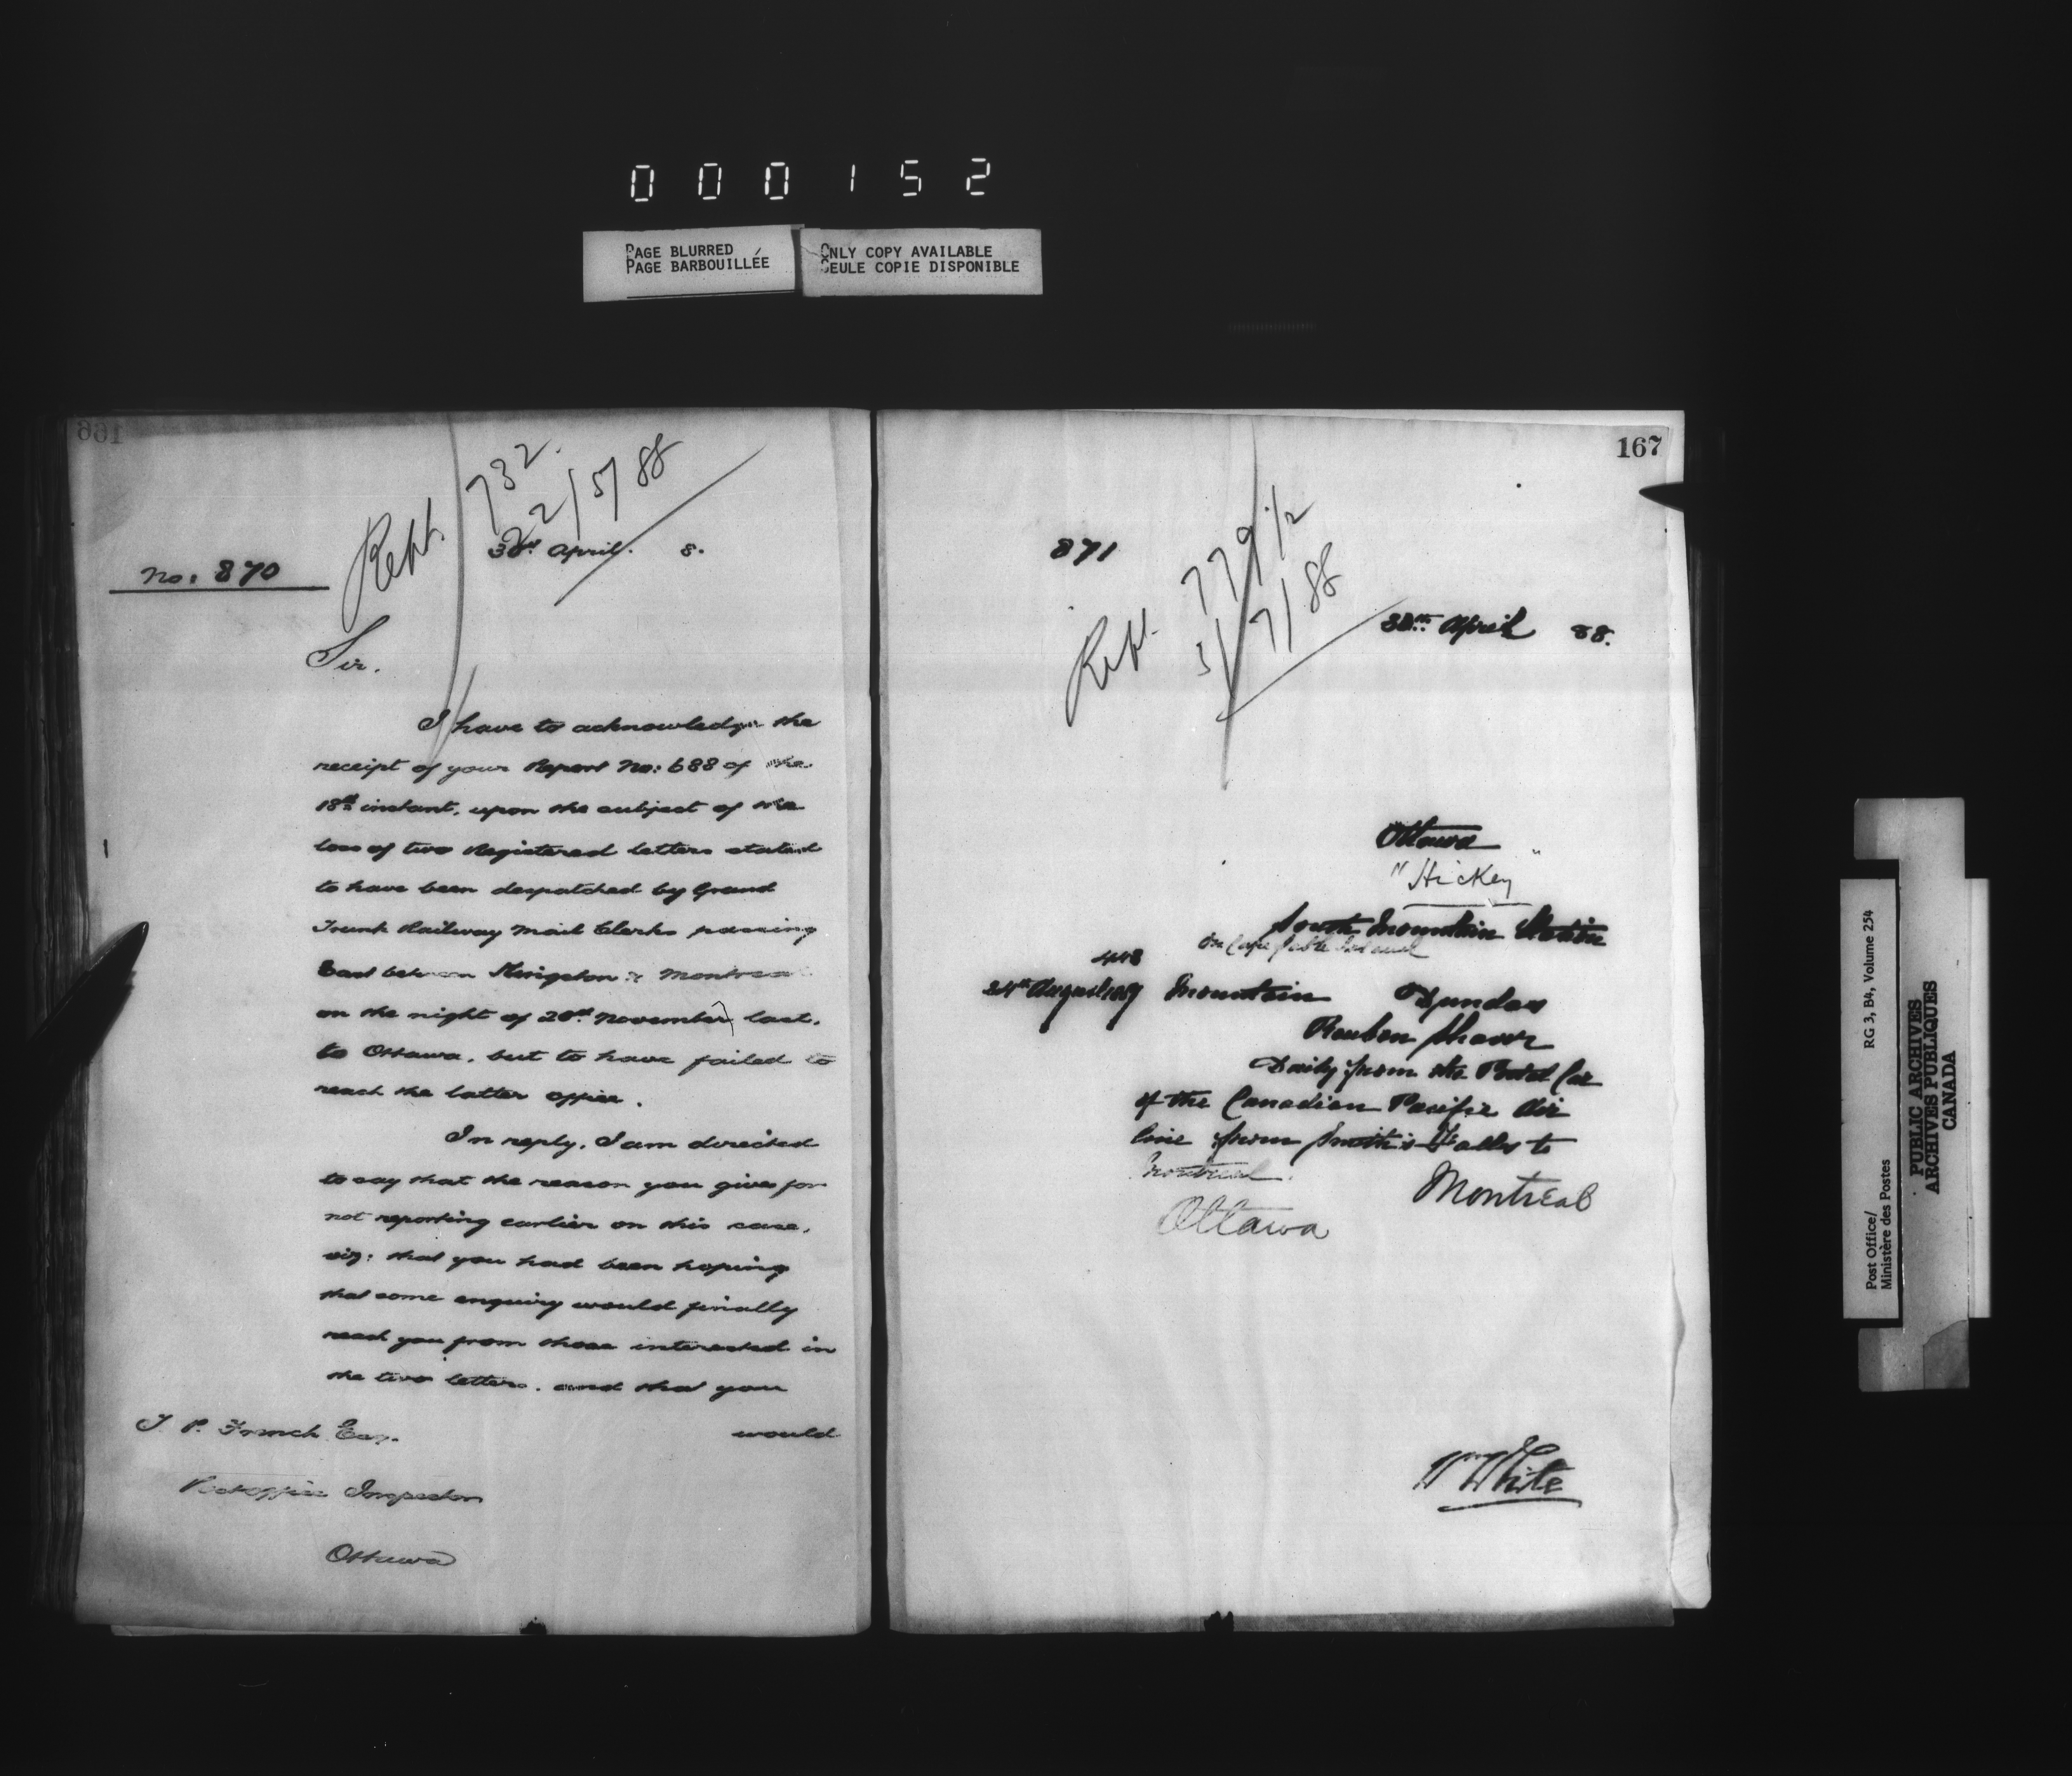 000152
PAGE BLURRED
PAGE BARBOUILLÉE
ONLY COPY AVAILABLE
SEULE COPIE DISPONIBLE
166
Rept. 732.
22/5/88
30th April. 8.
No: 870
Sir.
I have to acknowledge the
receipt of your Report No: 688 of the
18th instant, upon the subject of the
loss of two Registered letters stated
to have been despatched by Grand
Trunk Railway Mail Clerks passing
East between Kingston & Montreal
on the night of 20th November last,
to Ottawa, but to have failed to
reach the latter office.
In reply, I am directed
to say that the reason you gives for
not reporting earlier on this case,
viz: that you had been hoping
that some enquiry would finally
reach you from those interested in
the two letters, and that you
would
T. P. French Esq.
Post Office Inspector
Ottawa
167
871
Rept. 779 1/2
3/7/88
30th April 88.
Ottawa
"Hickey"
South Mountain Station
on Cape Sable Island
448
24th August 1869 Mountain Dundas
Reuben Shaver
Daily from the Postal Car
of the Canadian Pacific Air
line from Smith's Falls to
Montreal.
Ottawa Montreal
Wm White
Post Office/
Ministère des Postes
RG 3, B4, Volume 254
PUBLIC ARCHIVES
ARCHIVES PUBLIQUES
CANADA